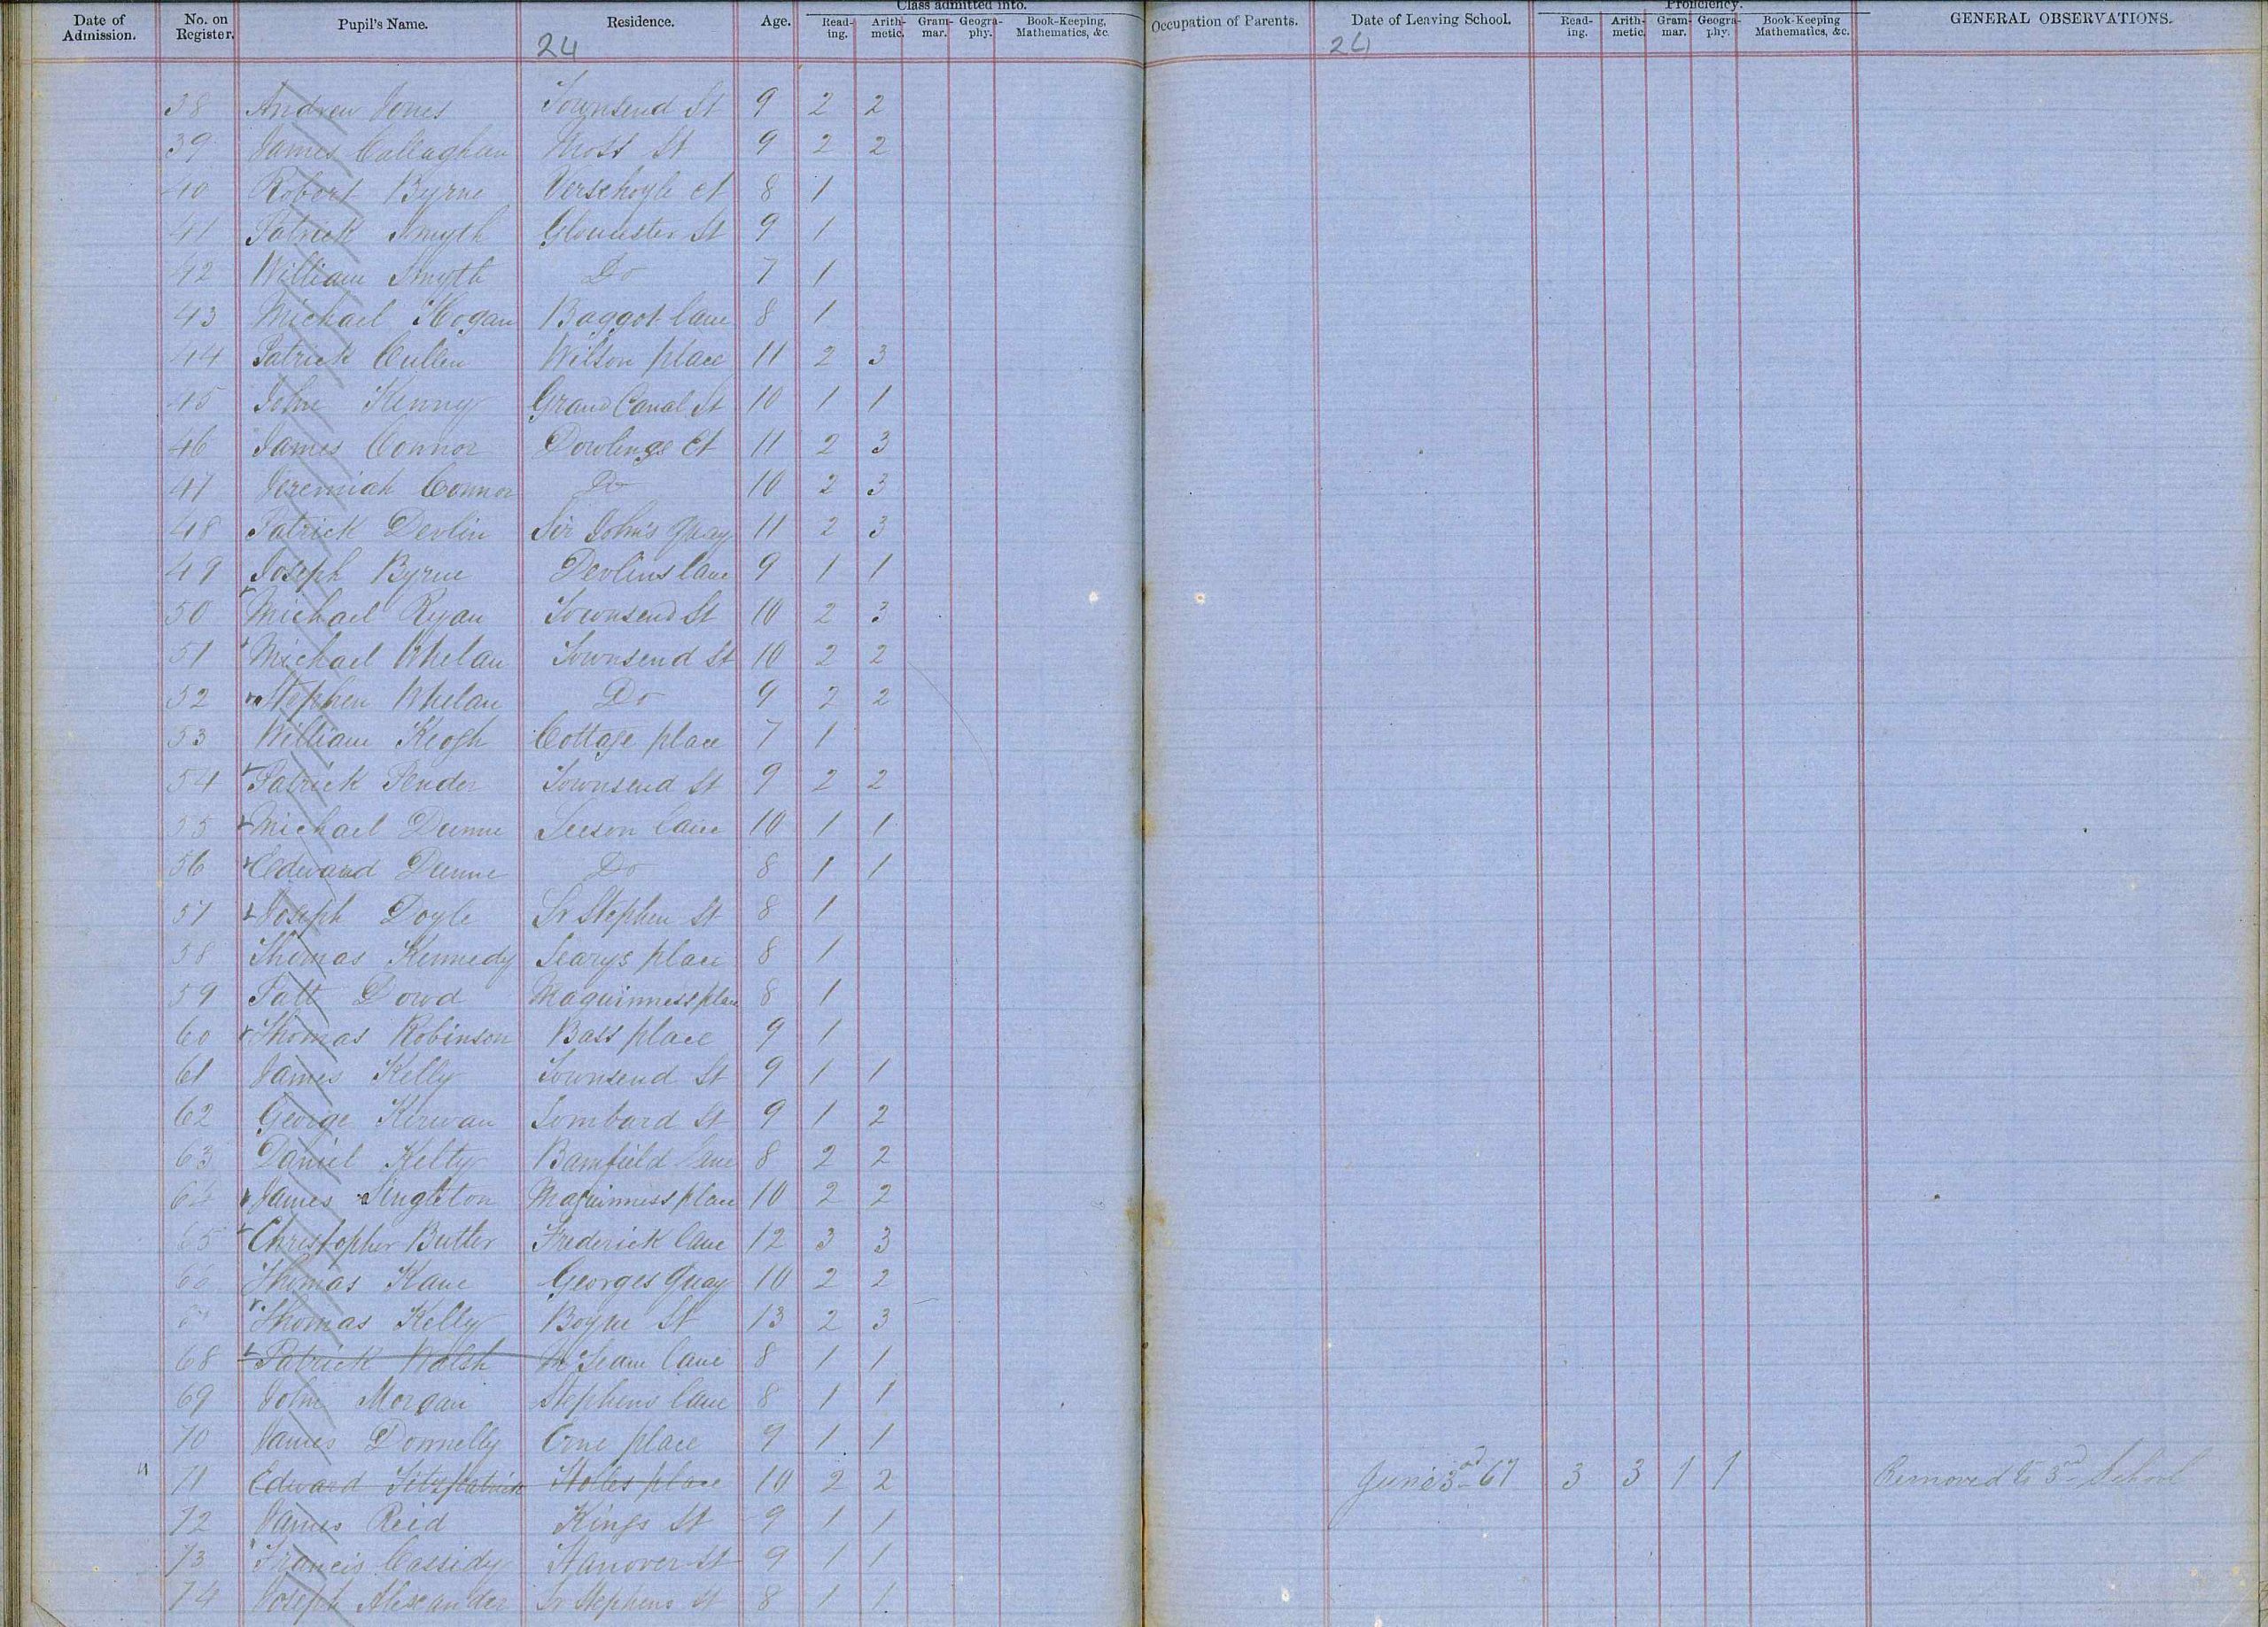 Class admitted into. Proficiency.
Date of Admission. No. on Register. Pupil's Name. Residence. Age. Read-ing. Arith-metic. Gram-mar. Geogra-phy. Book-Keeping, Mathematics, &c. Occupation of Parents. Date of Leaving School. Read-ing. Arith-metic. Gram-mar. Geogra-phy. Book-Keeping Mathematics, &c. GENERAL OBSERVATIONS.
24 24
38 Andrew Jones Townsend St 9 2 2
39 James Callaghan Moss St 9 2 2
40 Robert Byrne Verschoyle ct 8 1
41 Patrick Smyth Gloucester St 9 1
42 William Smyth Do 7 1
43 Michael Hogan Baggot lane 8 1
44 Patrick Cullen Wilson place 11 2 3
45 John Kenny Grand Canal St 10 1 1
46 James Connor Dowlings Ct 11 2 3
47 Jeremiah Connor Do 10 2 3
48 Patrick Devlin Sir John's Quay 11 2 3
49 Joseph Byrne Devlins lane 9 1 1
50 Michael Ryan Townsend St 10 2 3
51 Michael Whelan Townsend St 10 2 2
52 Stephen Whelan Do 9 2 2
53 William Keogh Cottage place 7 1
54 Patrick Pender Townsend St 9 2 2
55 Michael Dunne Leeson lane 10 1 1
56 Edward Dunne Do 8 1 1
57 Joseph Doyle Sr Stephen St 8 1
58 Thomas Kennedy Learys place 8 1
59 Patt Dowd Maguinness place 8 1
60 Thomas Robinson Bass place 9 1
61 James Kelly Townsend St 9 1 1
62 George Kirwan Lombard St 9 1 2
63 Daniel Kelty Bamfield lane 8 2 2
64 James Singleton Maguinness place 10 2 2
65 Christopher Butler Frederick lane 12 3 3
66 Thomas Kane Georges Quay 10 2 2
67 Thomas Kelly Boyne St 13 2 3
68 Patrick Walsh lane 8 1 1
69 John Morgan Stephens lane 8 1 1
70 James Donnelly place 9 1 1
71 Edward Fitzpatrick Holles place 10 2 2 June 3rd 67 3 3 1 1 Removed to 3rd School
72 James Reid Kings St 9 1 1
73 Francis Cassidy Hanover St 9 1 1
74 Joseph Alexander Sr Stephens St 8 1 1